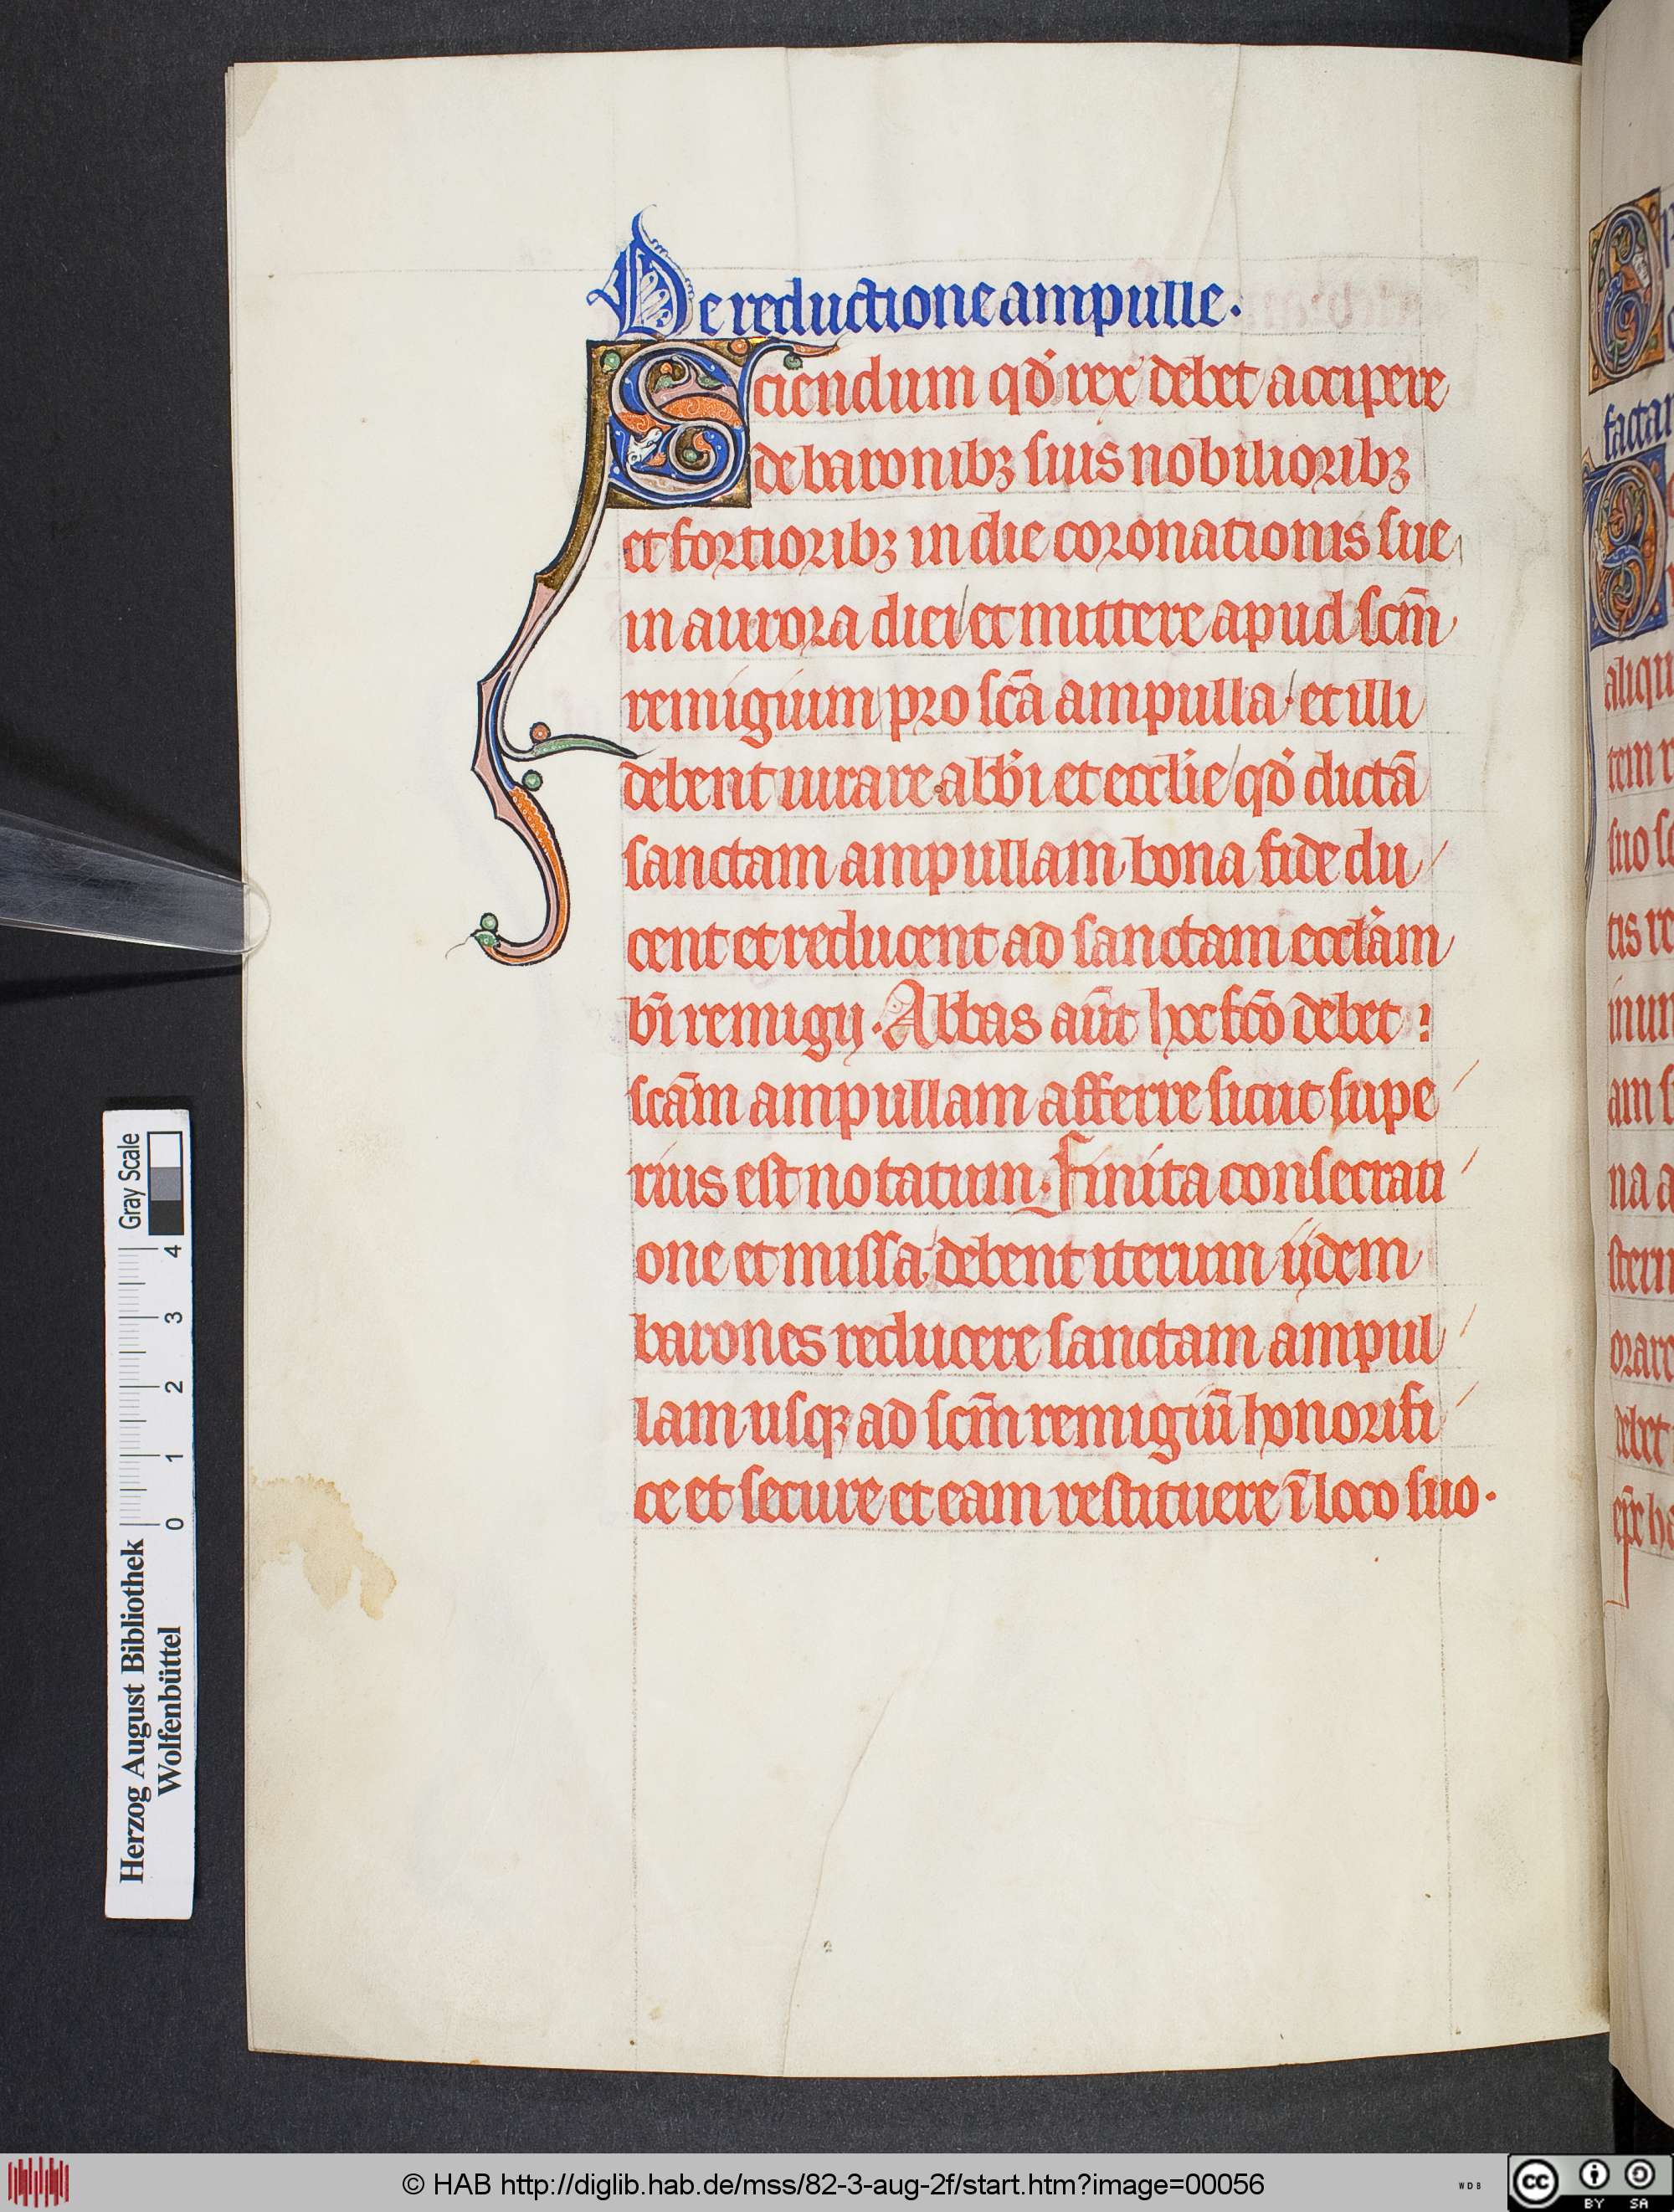 De reductione ampulle.
Sciendum qď rex debet accipere
de baronibꝫ suis nobilioribꝫ
et fortioribꝫ in die coronationis sue
in aurora diei et mittere apud scm̄
remigium pro scā ampulla. et illi
debent iurare abb̄i et eccl̄ie qď dictā
sanctam ampullam bona fide du
cent et reducent ad sanctam eccl̄am
b̄i remigij. Abbas aūt hoc fc̄o debet
scām ampullam afferre sicut supe
rius est notatum. Finita consecrati
one et missa debent iterum ijdem
barones reducere sanctam ampul
lam usqꝫ ad scm̄ remigiū honorifi
ce et secure et eam restituere ī loco suo.
factam
aliqu
tem
suo
tis re
inun
am s
na a
stern
orare
debet
Herzog August Bibliothek
Wolfenbüttel
0 1 2 3 4
Gray Scale
© HAB http://diglib.hab.de/mss/82-3-aug-2f/start.htm?image=00056
WDB
CC BY SA